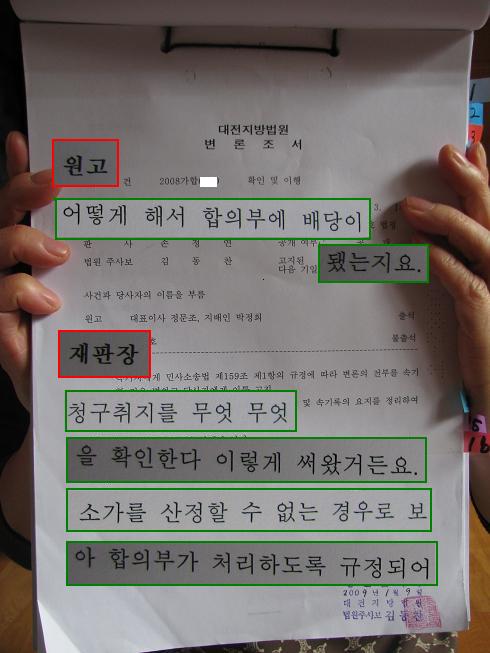 대전지방법원
변 론 조 서
원고
건 2008가합( ) 확인 및 이행
어떻게 해서 합의부에 배당이
3. 1
판 사 손 정 연 공개 여부
됐는지요.
법원 주사보 김 동 찬 고지된
다음 기일
사건과 당사자의 이름을 부름
원고 대표이사 정문조, 지배인 박정희 출석
호 불출석
재판장
민사소송법 제159조 제1항의 규정에 따라 변론의 전부를 속기
청구취지를 무엇 무엇
및 속기록의 요지를 정리하여
을 확인한다 이렇게 써왔거든요.
소가를 산정할 수 없는 경우로 보
아 합의부가 처리하도록 규정되어
2009년 1월 9일
대 전 지 방 법 원
법원주사보 김동찬